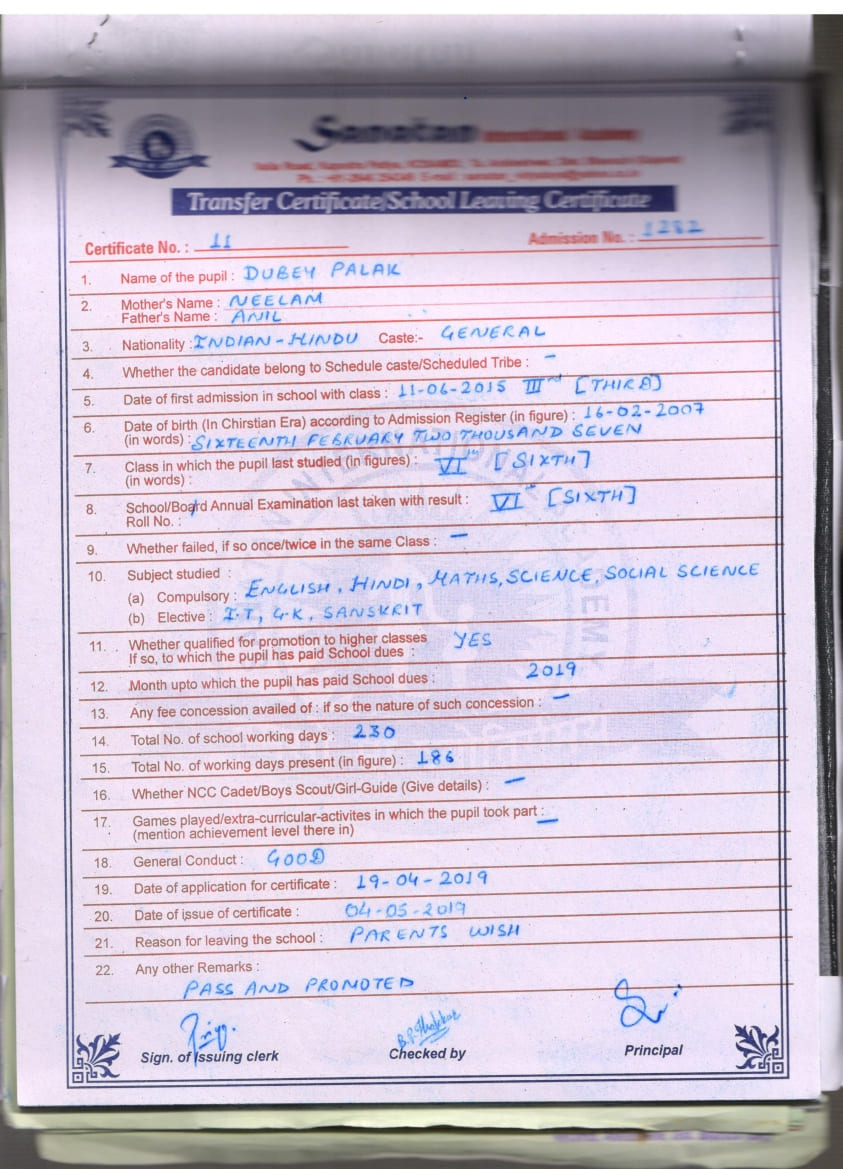 Sanatan International Academy
Transfer Certificate/School Leaving Certificate
Certificate No. : 11 Admission No. : 1282
1. Name of the pupil : DUBEY PALAK
2. Mother's Name : NEELAM
Father's Name : ANIL
3. Nationality : INDIAN-HINDU Caste:- GENERAL
4. Whether the candidate belong to Schedule caste/Scheduled Tribe : -
5. Date of first admission in school with class : 11-06-2015 IIIrd [THIRD]
6. Date of birth (In Chirstian Era) according to Admission Register (in figure) : 16-02-2007
(in words) : SIXTEENTH FEBRUARY TWO THOUSAND SEVEN
7. Class in which the pupil last studied (in figures) : VIth [SIXTH]
(in words) :
8. School/Board Annual Examination last taken with result : VIth [SIXTH]
Roll No. :
9. Whether failed, if so once/twice in the same Class : -
10. Subject studied :
(a) Compulsory : ENGLISH, HINDI, MATHS, SCIENCE, SOCIAL SCIENCE
(b) Elective : I.T, G.K, SANSKRIT
11. Whether qualified for promotion to higher classes YES
If so, to which the pupil has paid School dues :
12. Month upto which the pupil has paid School dues : 2019
13. Any fee concession availed of : if so the nature of such concession : -
14. Total No. of school working days : 230
15. Total No. of working days present (in figure) : 186
16. Whether NCC Cadet/Boys Scout/Girl-Guide (Give details) : -
17. Games played/extra-curricular-activites in which the pupil took part : -
(mention achievement level there in)
18. General Conduct : GOOD
19. Date of application for certificate : 19-04-2019
20. Date of issue of certificate : 04-05-2019
21. Reason for leaving the school : PARENTS WISH
22. Any other Remarks :
PASS AND PROMOTED
Sign. of Issuing clerk Checked by Principal